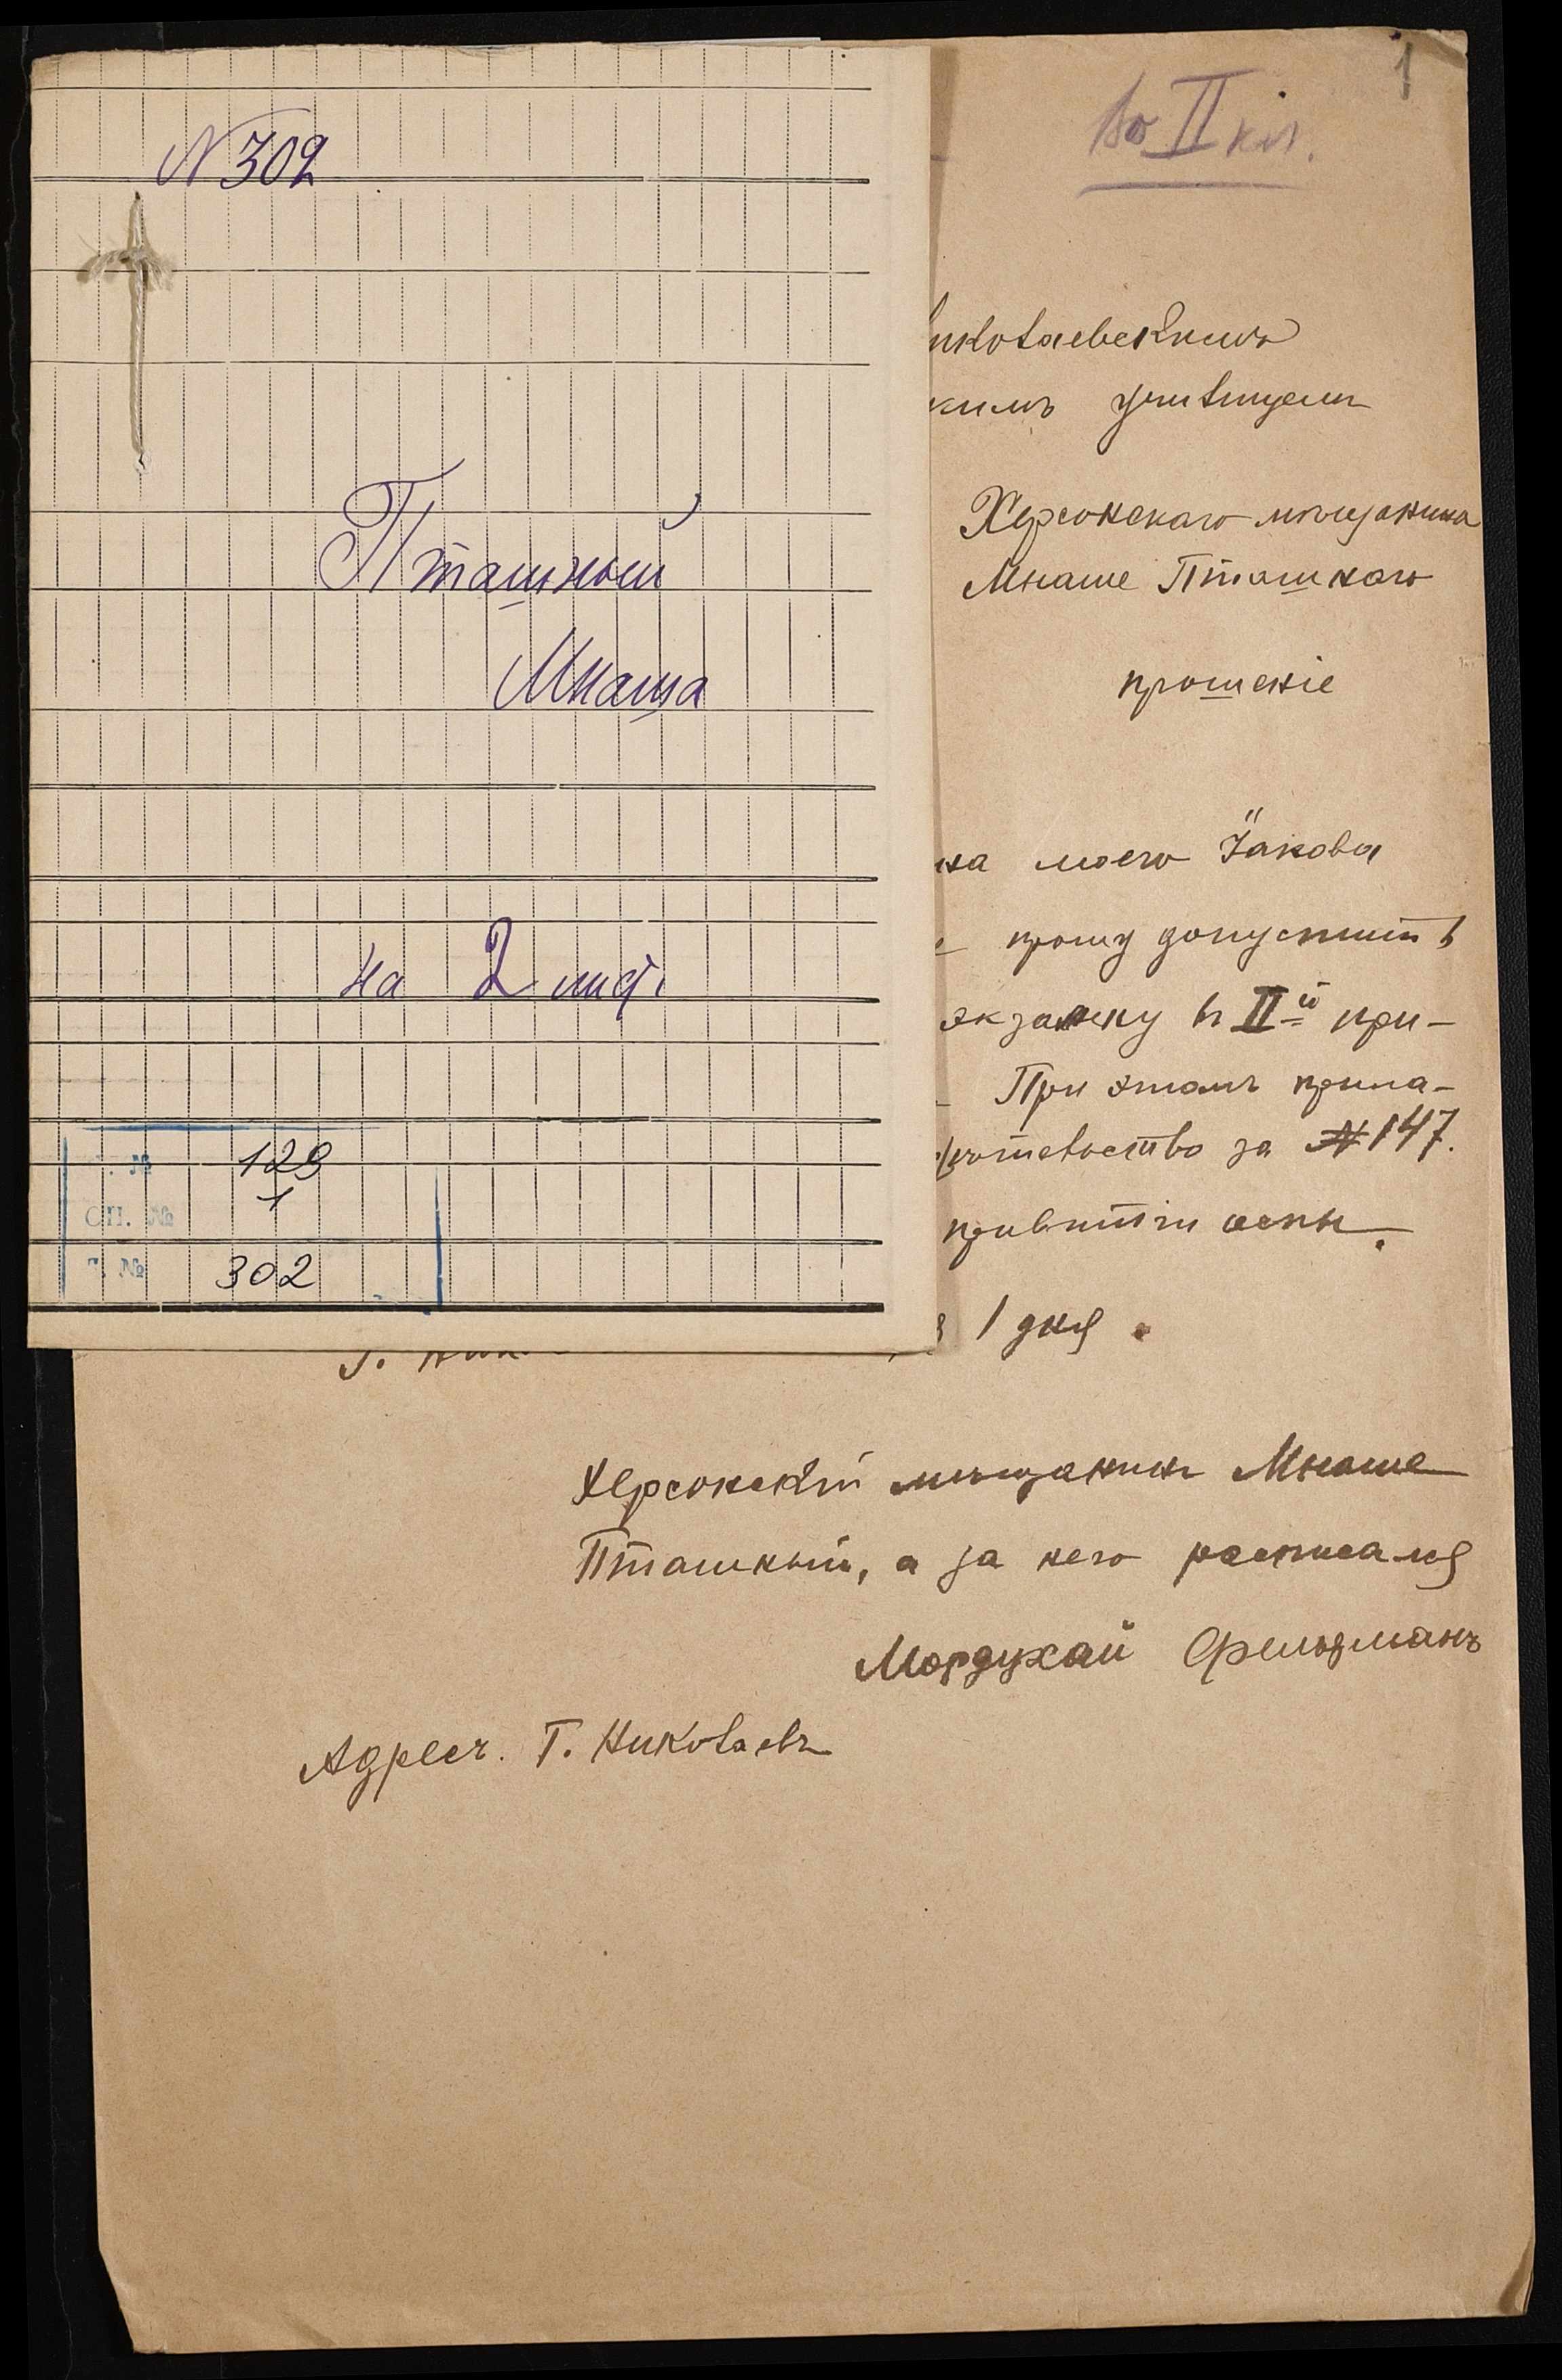 N 302
Пташный
Мнаша
на 2 лист.
Ф. № 129
ОП. № 1
Д. № 302
1
Во II кл.
иколаевскимъ
кимъ училищемъ
Херсонскаго мѣщанина
Мнаше Пташнаго
прошеніе
на моего Якова
прошу допустить
экзамену въ II-й при-
При этомъ прила-
дѣтельство за № 147.
привитіи оспы.
1 дня.
Г. Ник
Херсонскій мѣщанинъ Мнаше
Пташный, а за него росписался
Мордухай Фельдманъ
Адресъ. Г. Николаевъ